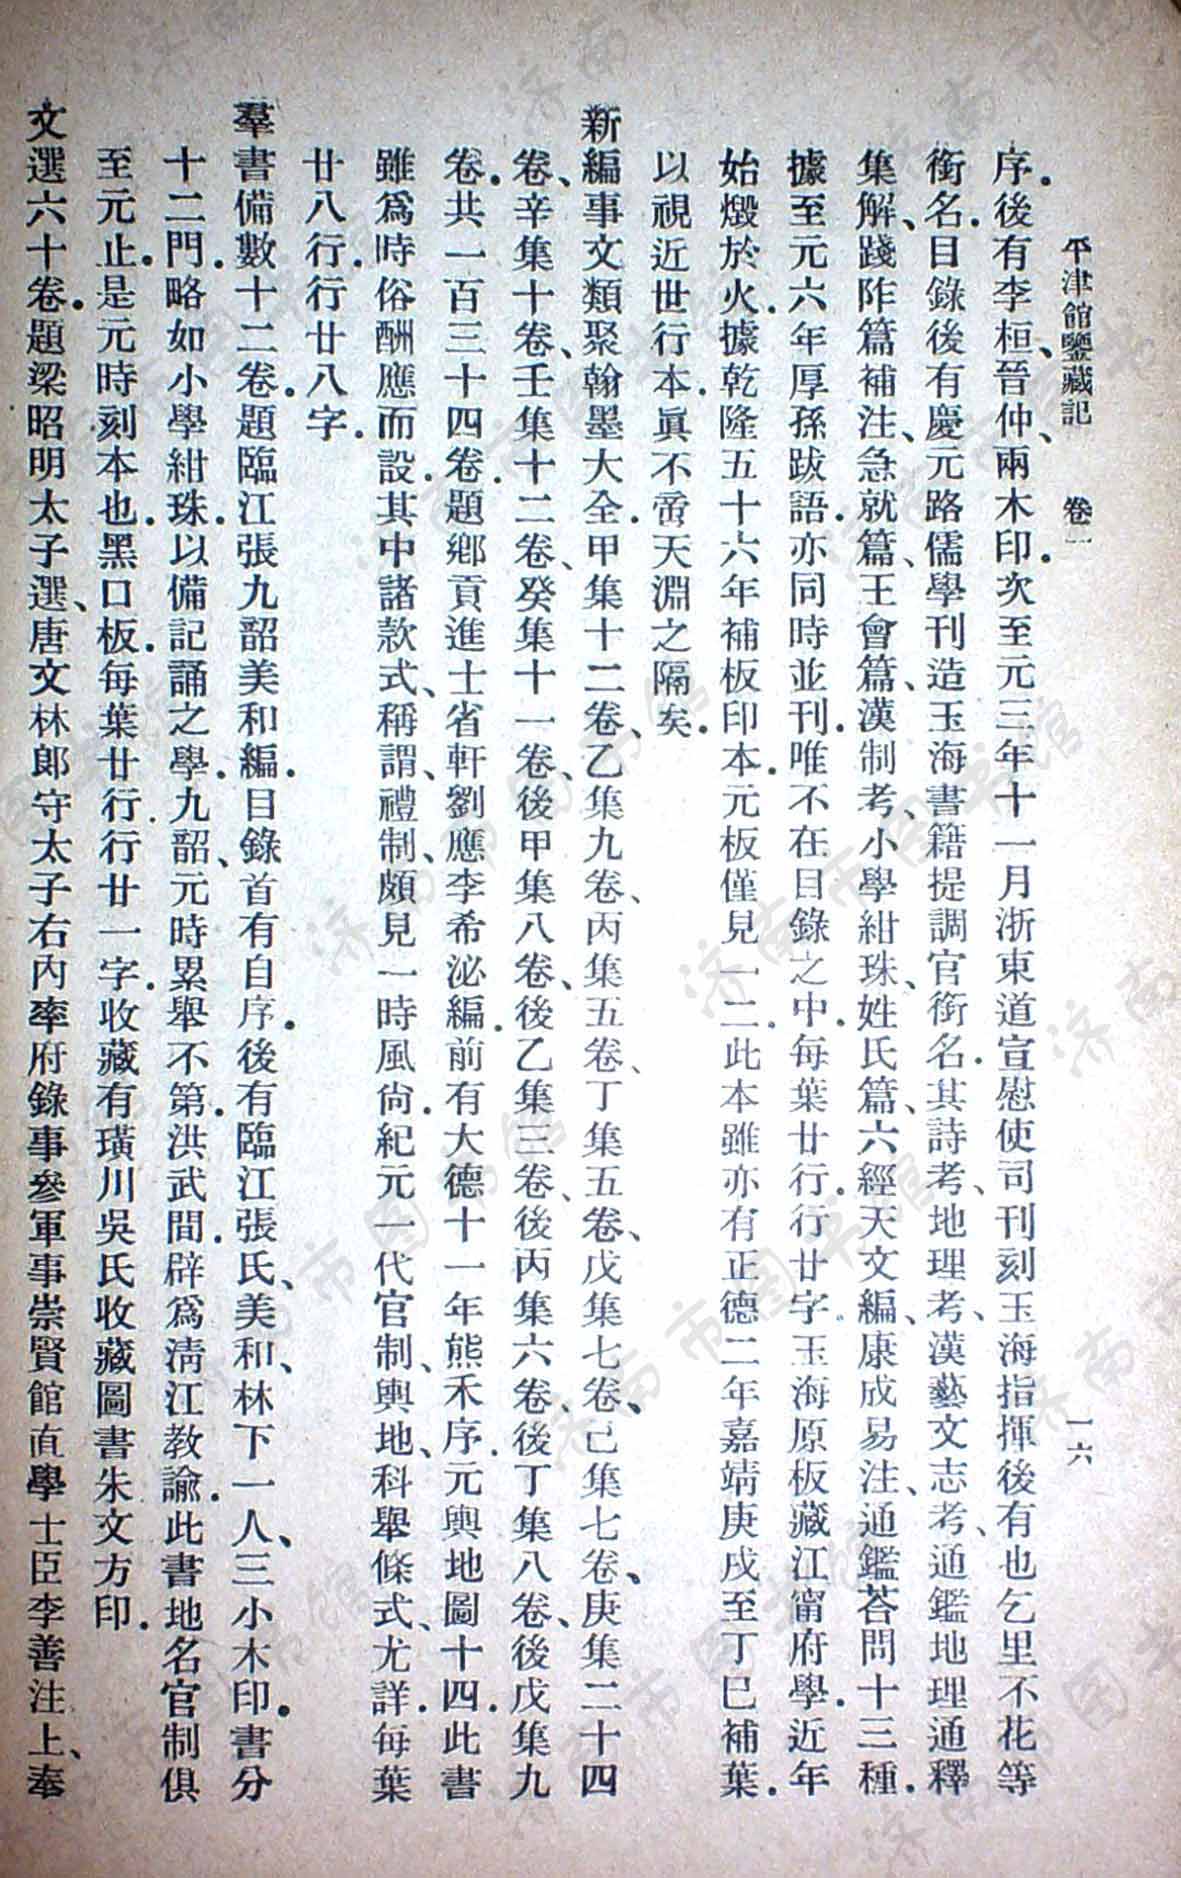 平津館鑒藏記　卷一　一六
序.後有李桓、晉仲、兩木印.次至元三年十一月浙東道宣慰使司刊刻玉海指揮後有也乞里不花等
銜名.目錄後有慶元路儒學刊造玉海書籍提調官銜名.其詩考、地理考、漢藝文志考、通鑑地理通釋
集解、踐阼篇補注、急就篇、王會篇、漢制考、小學紺珠、姓氏篇、六經天文編、康成易注、通鑑荅問十三種.
據至元六年厚孫跋語.亦同時並刊.唯不在目錄之中.每葉廿行.行廿字玉海原板藏江甯府學.近年
始燬於火.據乾隆五十六年補板印本.元板僅見一二.此本雖亦有正德二年嘉靖庚戌至丁巳補葉.
以視近世行本.眞不啻天淵之隔矣.
新編事文類聚翰墨大全.甲集十二卷、乙集九卷、丙集五卷、丁集五卷、戊集七卷、己集七卷、庚集二十四
卷、辛集十卷、壬集十二卷、癸集十一卷、後甲集八卷、後乙集三卷、後丙集六卷、後丁集八卷、後戊集九
卷.共一百三十四卷.題鄕貢進士省軒劉應李希泌編.前有大德十一年熊禾序.元輿地圖十四.此書
雖爲時俗酬應而設.其中諸款式、稱謂、禮制、頗見一時風尙.紀元一代官制、輿地、科舉條式、尤詳.每葉
廿八行.行廿八字.
羣書備數十二卷.題臨江張九韶美和編.目錄首有自序.後有臨江張氏、美和、林下一人、三小木印.書分
十二門.略如小學紺珠.以備記誦之學.九韶、元時累舉不第.洪武間.辟爲淸江教諭.此書地名官制俱
至元止.是元時刻本也.黑口板.每葉廿行.行廿一字.收藏有璜川吳氏收藏圖書朱文方印.
文選六十卷.題梁昭明太子選、唐文林郞守太子右內率府錄事參軍事崇賢館直學士臣李善注上、奉